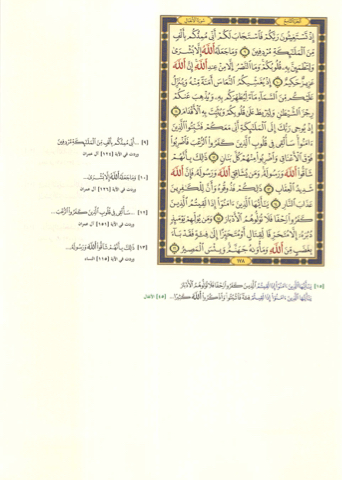 إِذْ تَسْتَغِيثُونَ رَبَّكُمْ فَاسْتَجَابَ لَكُمْ أَنِّي مُمِدُّكُم بِأَلْفٍ
مِّنَ الْمَلَائِكَةِ مُرْدِفِينَ ۝٩ وَمَا جَعَلَهُ اللَّهُ إِلَّا بُشْرَىٰ
وَلِتَطْمَئِنَّ بِهِ قُلُوبُكُمْ وَمَا النَّصْرُ إِلَّا مِنْ عِندِ اللَّهِ إِنَّ اللَّهَ
عَزِيزٌ حَكِيمٌ ۝١٠ إِذْ يُغَشِّيكُمُ النُّعَاسَ أَمَنَةً مِّنْهُ وَيُنَزِّلُ
عَلَيْكُم مِّنَ السَّمَاءِ مَاءً لِّيُطَهِّرَكُم بِهِ وَيُذْهِبَ عَنكُمْ
رِجْزَ الشَّيْطَانِ وَلِيَرْبِطَ عَلَىٰ قُلُوبِكُمْ وَيُثَبِّتَ بِهِ الْأَقْدَامَ ۝١١
إِذْ يُوحِي رَبُّكَ إِلَى الْمَلَائِكَةِ أَنِّي مَعَكُمْ فَثَبِّتُوا الَّذِينَ
ءَامَنُوا سَأُلْقِي فِي قُلُوبِ الَّذِينَ كَفَرُوا الرُّعْبَ فَاضْرِبُوا
فَوْقَ الْأَعْنَاقِ وَاضْرِبُوا مِنْهُمْ كُلَّ بَنَانٍ ۝١٢ ذَٰلِكَ بِأَنَّهُمْ
شَاقُّوا اللَّهَ وَرَسُولَهُ وَمَن يُشَاقِقِ اللَّهَ وَرَسُولَهُ فَإِنَّ اللَّهَ
شَدِيدُ الْعِقَابِ ۝١٣ ذَٰلِكُمْ فَذُوقُوهُ وَأَنَّ لِلْكَافِرِينَ
عَذَابَ النَّارِ ۝١٤ يَا أَيُّهَا الَّذِينَ ءَامَنُوا إِذَا لَقِيتُمُ الَّذِينَ
كَفَرُوا زَحْفًا فَلَا تُوَلُّوهُمُ الْأَدْبَارَ ۝١٥ وَمَن يُوَلِّهِمْ يَوْمَئِذٍ
دُبُرَهُ إِلَّا مُتَحَرِّفًا لِّقِتَالٍ أَوْ مُتَحَيِّزًا إِلَىٰ فِئَةٍ فَقَدْ بَاءَ
بِغَضَبٍ مِّنَ اللَّهِ وَمَأْوَاهُ جَهَنَّمُ وَبِئْسَ الْمَصِيرُ ۝١٦
١٧٨
[٩] ...أَنِّي مُمِدُّكُم بِأَلْفٍ مِّنَ الْمَلَائِكَةِ مُرْدِفِينَ
وردت في الآية [١٢٤] آل عمران
[١٠] وَمَا جَعَلَهُ اللَّهُ إِلَّا بُشْرَىٰ...
وردت في الآية [١٢٦] آل عمران
[١٢] ...سَأُلْقِي فِي قُلُوبِ الَّذِينَ كَفَرُوا الرُّعْبَ...
وردت في الآية [١٥١] آل عمران
[١٣] ذَٰلِكَ بِأَنَّهُمْ شَاقُّوا اللَّهَ وَرَسُولَهُ...
وردت في الآية [١١٥] النساء
[١٥] يَا أَيُّهَا الَّذِينَ ءَامَنُوا إِذَا لَقِيتُمُ الَّذِينَ كَفَرُوا زَحْفًا فَلَا تُوَلُّوهُمُ الْأَدْبَارَ
يَا أَيُّهَا الَّذِينَ ءَامَنُوا إِذَا لَقِيتُمْ فِئَةً فَاثْبُتُوا وَاذْكُرُوا اللَّهَ كَثِيرًا... [٤٥] الأنفال